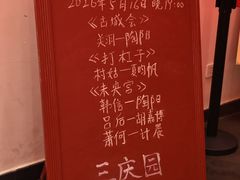 2026年5月16日晚19:00
《古城会》
关羽—陶阳
《打杠子》
村姑—夏昀帆
《未央宫》
韩信—陶阳
吕后—胡嘉博
萧何—计晨
三庆园